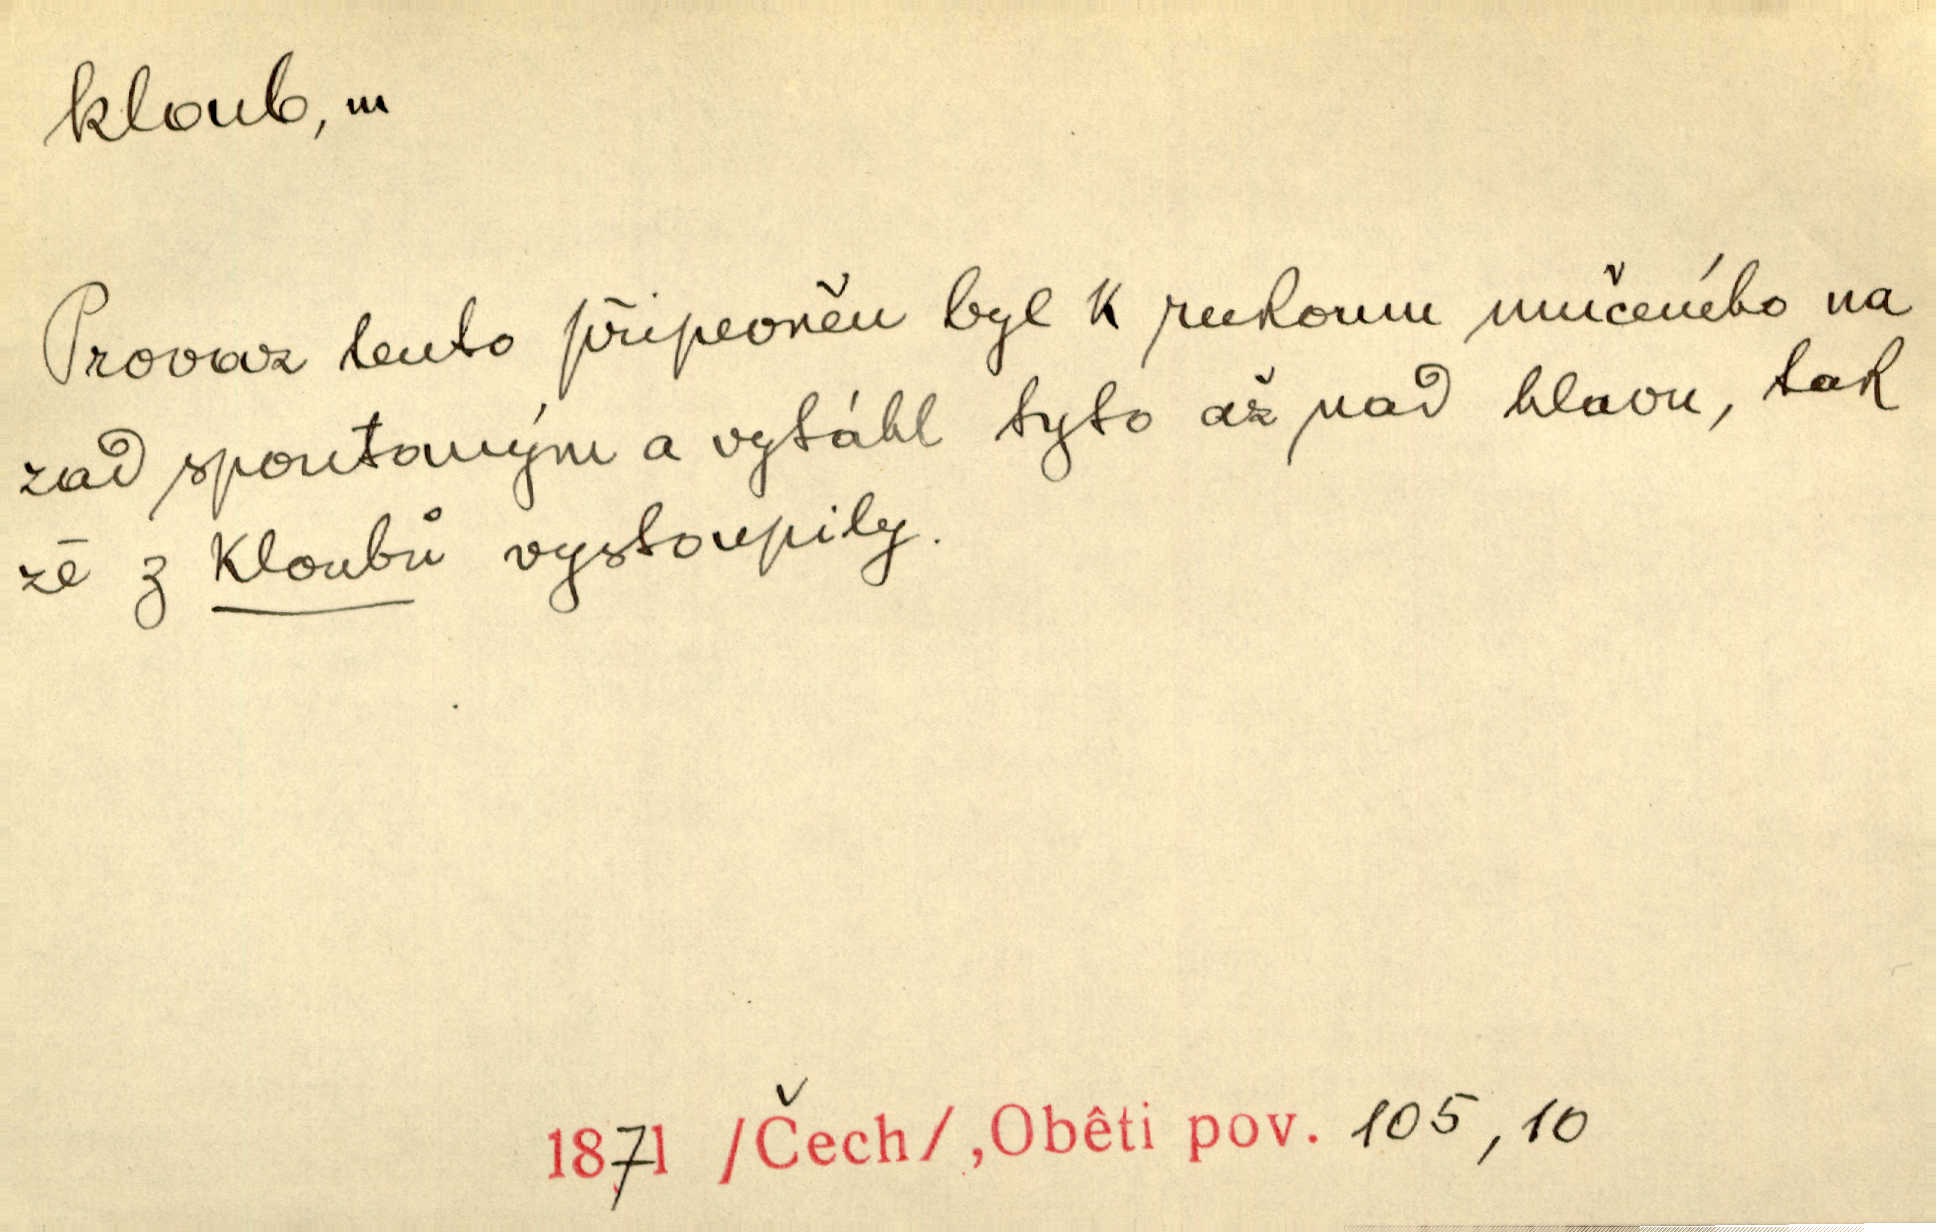 kloub, m
Provaz tento připevněn byl k rukoum mučeného na
zad spoutaným a vytáhl tyto až nad hlavu, tak
že z kloubů vystoupily.
1871 /Čech/, Oběti pov. 105, 10